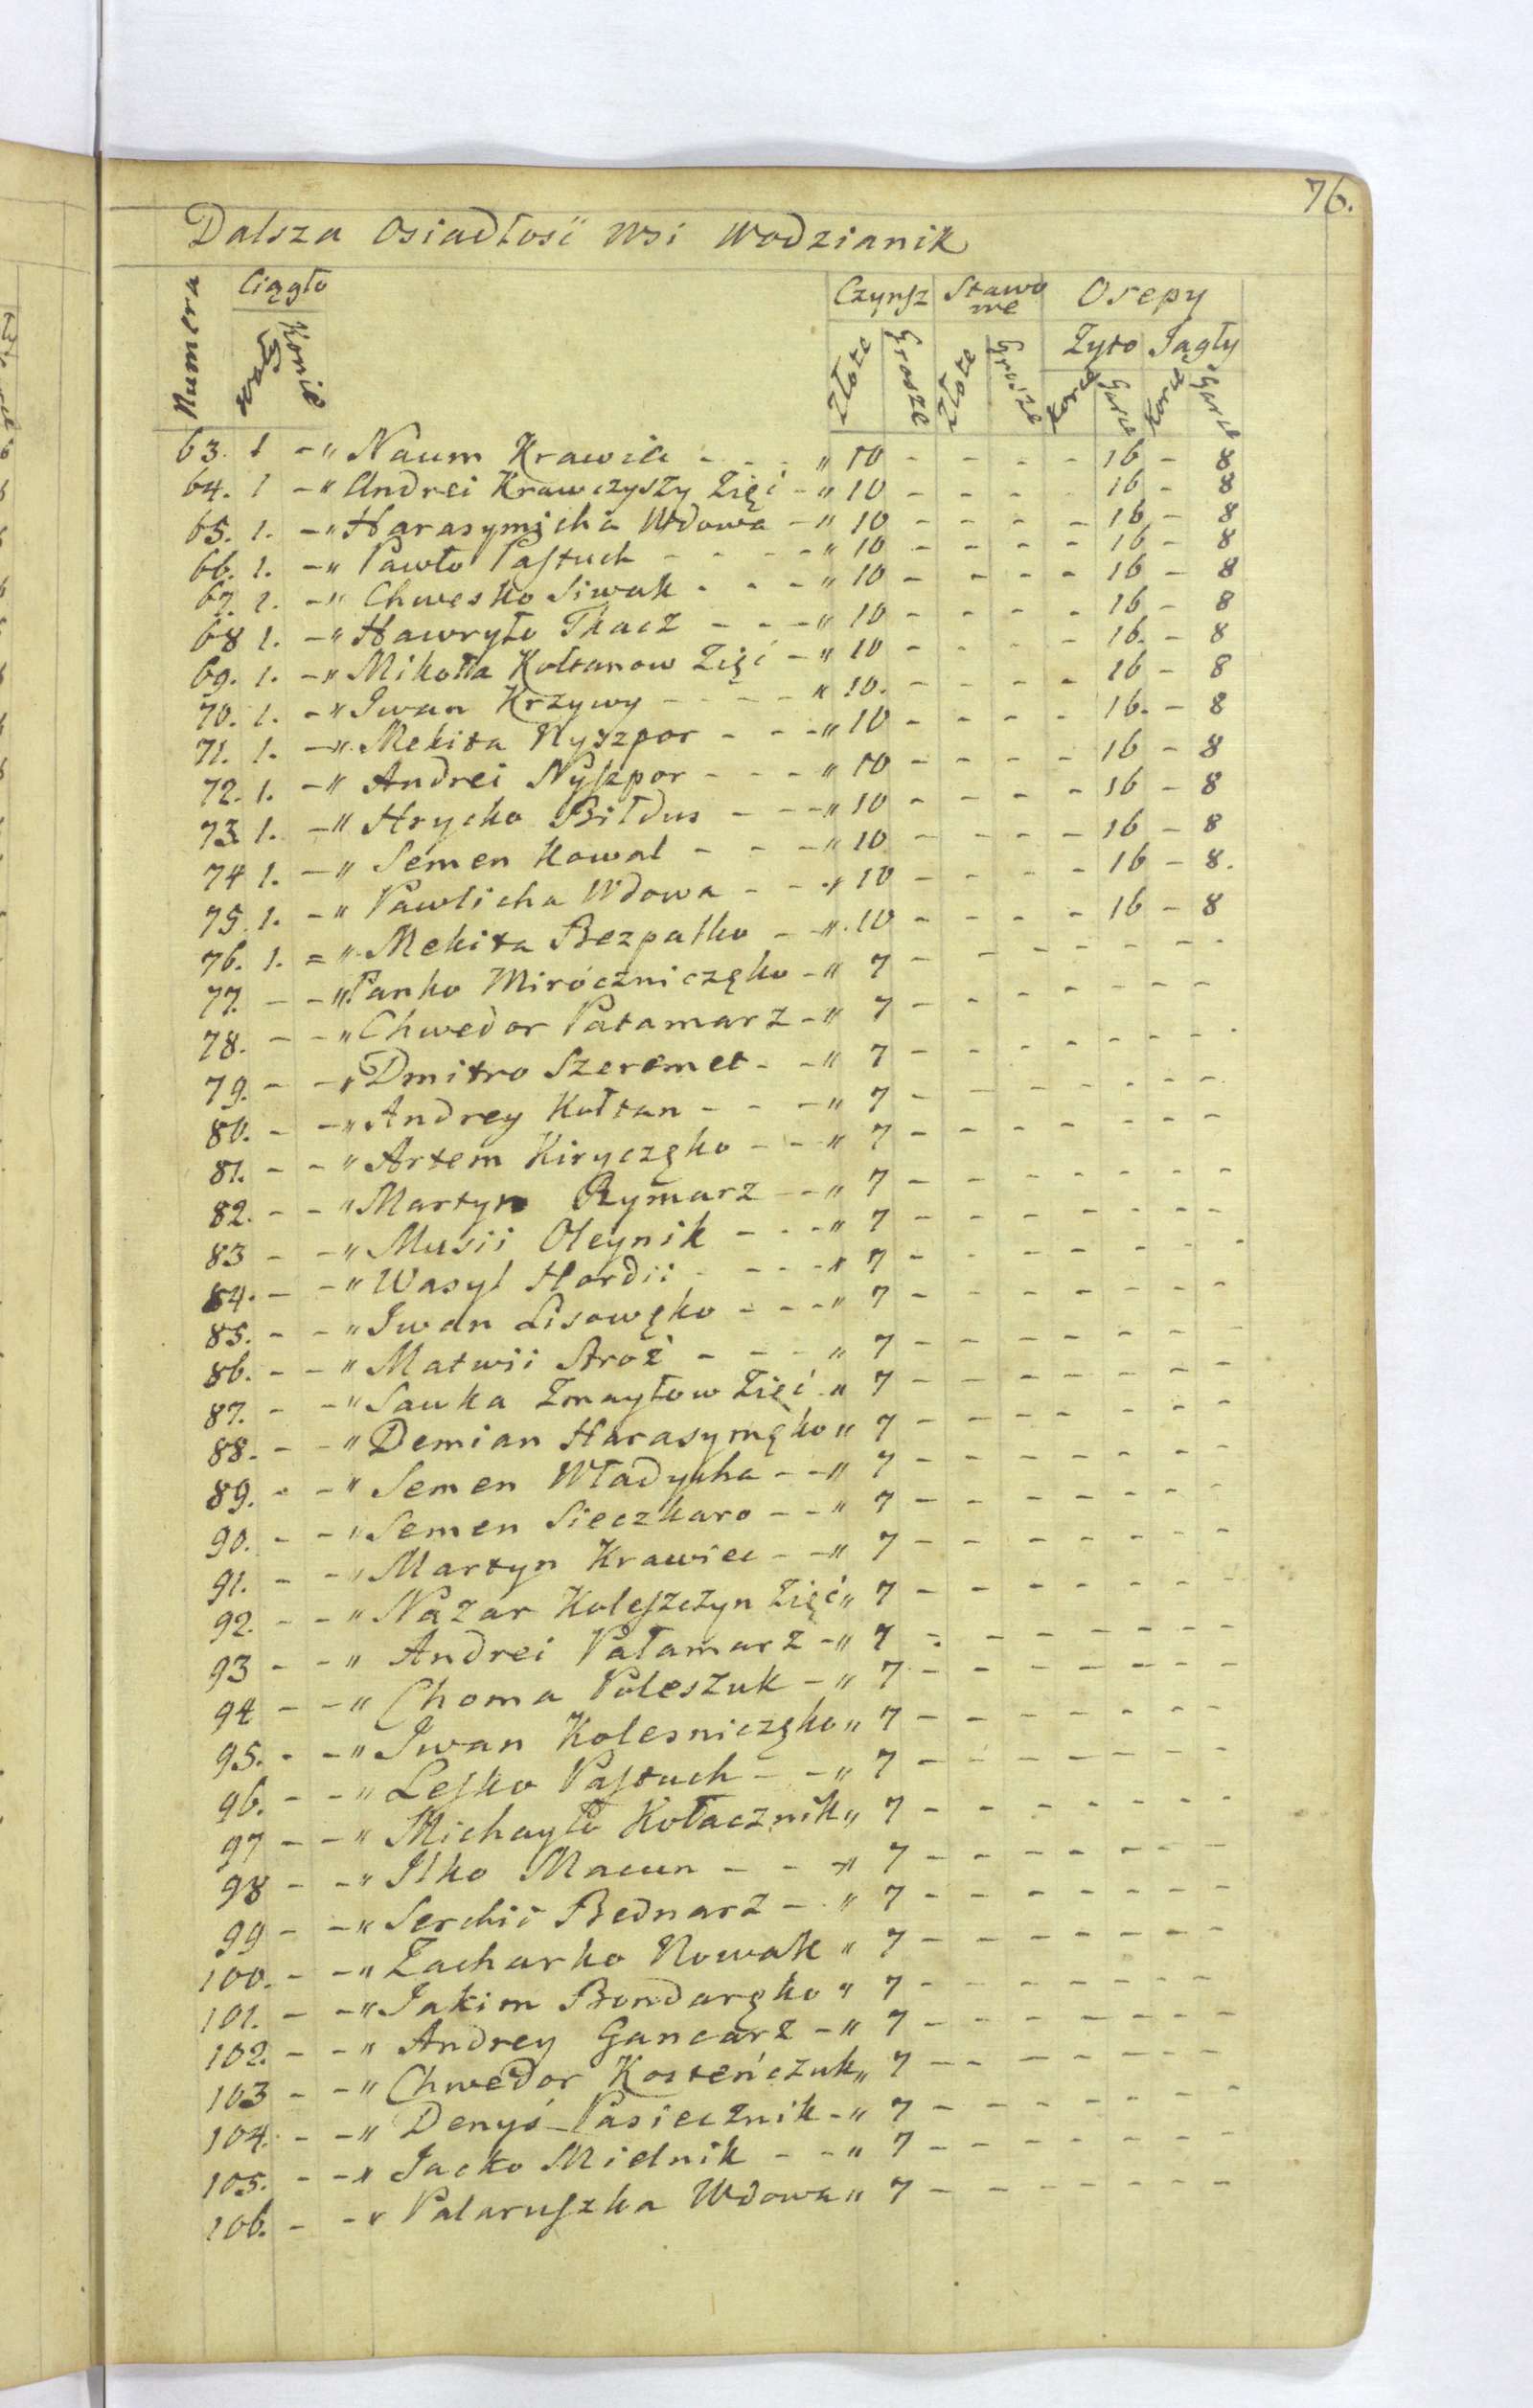 76.
Dalsza Osiadłosć Wsi Wodzianik
Numera Ciągło Czynsz Stawo Osepy
we
Konie Złote Grosze Złote Grosze Zyto Jągły
Korce Garce Korce Garce
63. 1 - " Naum Krawiec - - - " 10 - - - - 16 - 8
64. 1 - " Andrei Krawczyszy Zięć - " 10 - - - - 16 - 8
65. 1. - " Harasymicha Wdowa - " 10 - - - - 16 - 8
66. 1. - " Pawło Pastuch - - - - " 10 - - - - 16 - 8
67. 1. - " Chwesko Siwak - - - " 10 - - - - 16 - 8
68 1. - " Hawryło Tkacz - - - " 10 - - - - 16 - 8
69. 1. - " Mikołła Kołtanow Zięć - " 10 - - - - 16. - 8
70. 1. - " Iwan Krzywy - - - - " 10. - - - - 16 - 8
71. 1. - " Mekita Nyszpor - - - " 10 - - - - 16. - 8
72. 1. - " Andrei Nyszpor - - - " 10 - - - - 16 - 8
73 1. - " Hrycko Biłdus - - - " 10 - - - - 16 - 8
74 1. - " Semen Kowal - - - " 10 - - - - 16 - 8
75. 1. - " Pawlicha Wdowa - - - " 10 - - - - 16 - 8.
76. 1. = " Mekita Bezpalko - - " 10 - - - - 16 - 8
77. - - " Panko Miróczniczęko - " 7 - - - - - - -
78. - - " Chwedor Patamarz - " 7 - - - - - - -
79. - - " Dmitro Szeremet - - " 7 - - - - - - -
80. - - " Andrey Kołtan - - - " 7 - - - - - - -
81. - - " Artem Kiryczęko - - " 7 - - - - - - -
82. - - " Martyn Rymarz - - " 7 - - - - - - -
83 - - " Musii Oleynik - - - " 7 - - - - - - -
84. - - " Wasyl Hordii - - - - " 7 - - - - - - -
85. - - " Iwan Lisowęko - - - " 7 - - - - - - -
86. - - " Matwii Stroż - - - " 7 - - - - - - -
87. - - " Sawka Zmayłow Zięć " 7 - - - - - - -
88. - - " Demian Harasymęko " 7 - - - - - - -
89. - - " Semen Władycha - - " 7 - - - - - - -
90. - - " Semen Sieczkaro - - " 7 - - - - - - -
91. - - " Martyn Krawiec - - " 7 - - - - - - -
92. - - " Nazar Koleszczyn Zięć " 7 - - - - - - -
93 - - " Andrei Pałamarz - " 7 - - - - - - -
94 - - " Choma Poleszuk - " 7 - - - - - - -
95. - - " Iwan Kolesniczęko " 7 - - - - - - -
96. - - " Lesko Pastuch - - " 7 - - - - - - -
97 - - " Michayło Kołacznik " 7 - - - - - - -
98 - - " Ilko Macun - - - " 7 - - - - - - -
99 - - " Serchii Bednarz - " 7 - - - - - - -
100. - - " Zacharko Nowak " 7 - - - - - - -
101. - - " Jakim Bondaręko " 7 - - - - - - -
102. - - " Andrey Gancarz - " 7 - - - - - - -
103 - - " Chwedor Kosteńczuk " 7 - - - - - - -
104. - - " Denyś Pasiecznik - " 7 - - - - - - -
105. - - " Jacko Mielnik - - " 7 - - - - - - -
106. - - " Palaruszka Wdowa " 7 - - - - - - -